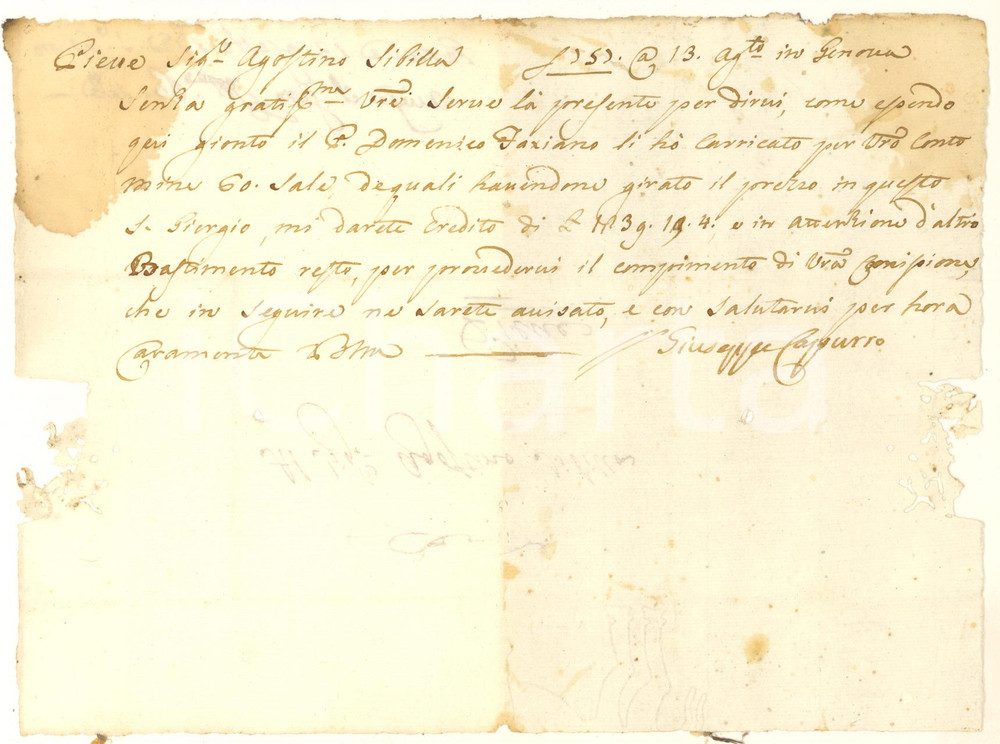 Pieve Sig.r Agostino Sibilla @ 13. Ag.to in Genova
Senza gratis.me Vre serve la presente per dirvi, come essendo
geri gionto il P. Domenico Faziano li hò Carricato per Vrõ Conto
mine 60. Sale, dequali havendone girato il prezzo in questo
S. Giorgio, mi darete Credito di £ 1139. 19. 4. e in attentione d'altro
Bastimento resto, per provedervi il compimento di Vrã Comissione,
che in seguire ne sarete avisato, e con salutarvi per hora
Caramente
Giuseppe Capurro
Al Sig.r Agostino Sibilla
Pieve
icharta